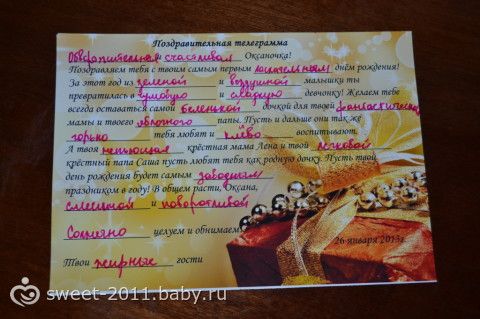 Поздравительная телеграмма
Обворожительная счастливая Оксаночка!
Поздравляем тебя с твоим самым первым днём рождения!
За этот год из зеленой и воздушной малышки ты
превратилась в громовую и сладкую девчонку! Желаем тебе
всегда оставаться самой беленькой дочкой для твоей фантастической
мамы и твоего яблочного папы. Пусть и дальше они так же
горько тебя любят и клёво воспитывают.
А твоя непьющая крёстная мама Лена и твой легковой
крёстный папа Саша пусть любят тебя как родную дочку. Пусть твой
день рождения будет самым заводным
праздником в году! В общем расти, Оксана,
смешной и поворотливой
Солмяно целуем и обнимаем
26 января 2013г.
Твои жирные гости
sweet-2011.baby.ru